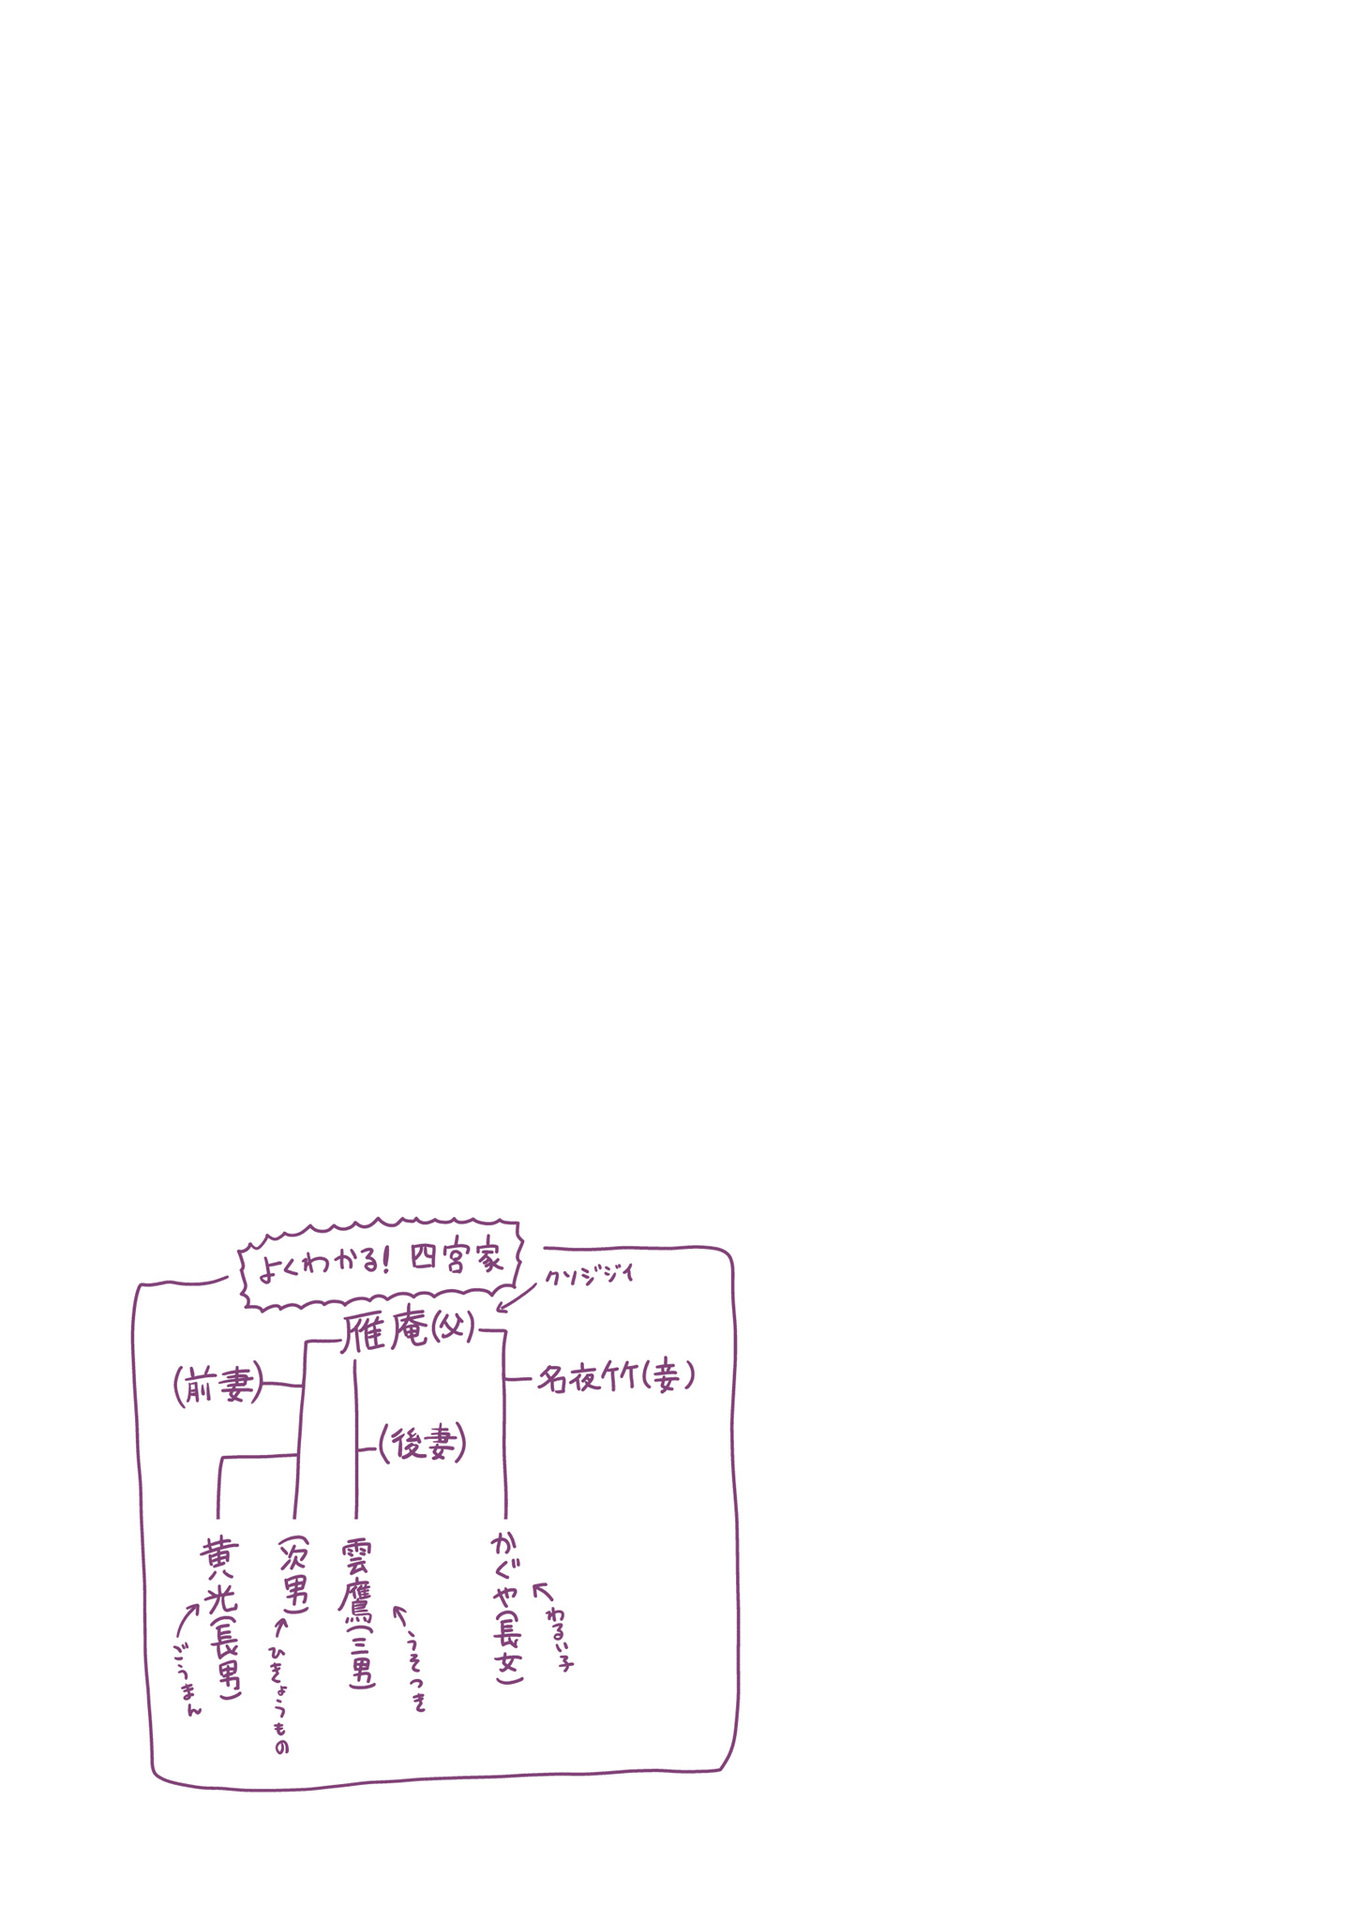 よくわかる! 四宮家
クソジジイ
雁庵(父)
(前妻)
名夜竹(妾)
(後妻)
黄光(長男)
ごうまん
(次男)
ひきょうもの
雲鷹(三男)
うそつき
かぐや(長女)
わるい子